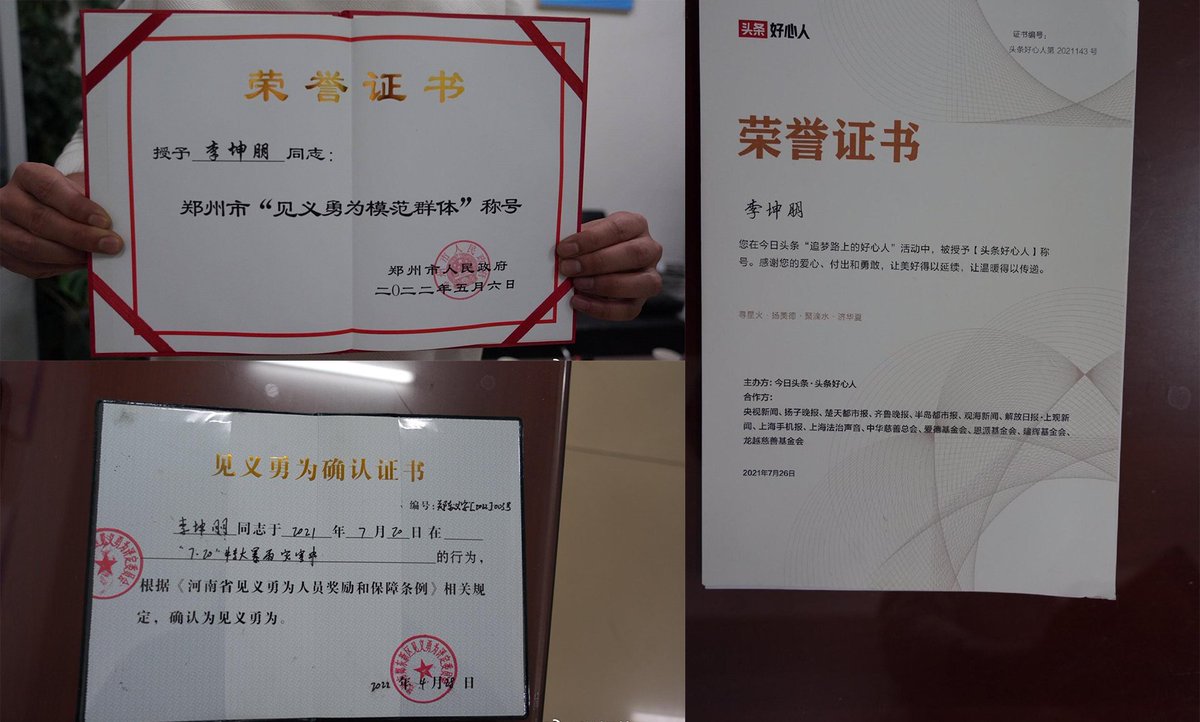 荣誉证书
授予 李坤朋 同志：
郑州市“见义勇为模范群体”称号
郑州市人民政府
二〇二二年五月六日
见义勇为确认证书
编号：
李坤朋同志于 2021 年 7 月 20 日在
“7·20”特大暴雨灾害中 的行为，
根据《河南省见义勇为人员奖励和保障条例》相关规
定，确认为见义勇为。
2022 年 4 月 日
头条 好心人
证书编号：
头条好心人第 2021143 号
荣誉证书
李坤朋
您在今日头条“追梦路上的好心人”活动中，被授予【头条好心人】称
号。感谢您的爱心、付出和勇敢，让美好得以延续，让温暖得以传递。
寻星火·扬美德·聚滴水·济华夏
主办方：今日头条·头条好心人
合作方：
央视新闻、扬子晚报、楚天都市报、齐鲁晚报、半岛都市报、观海新闻、解放日报·上观新
闻、上海手机报、上海法治声音、中华慈善总会、爱德基金会、恩派基金会、建辉基金会、
龙越慈善基金会
2021年7月26日